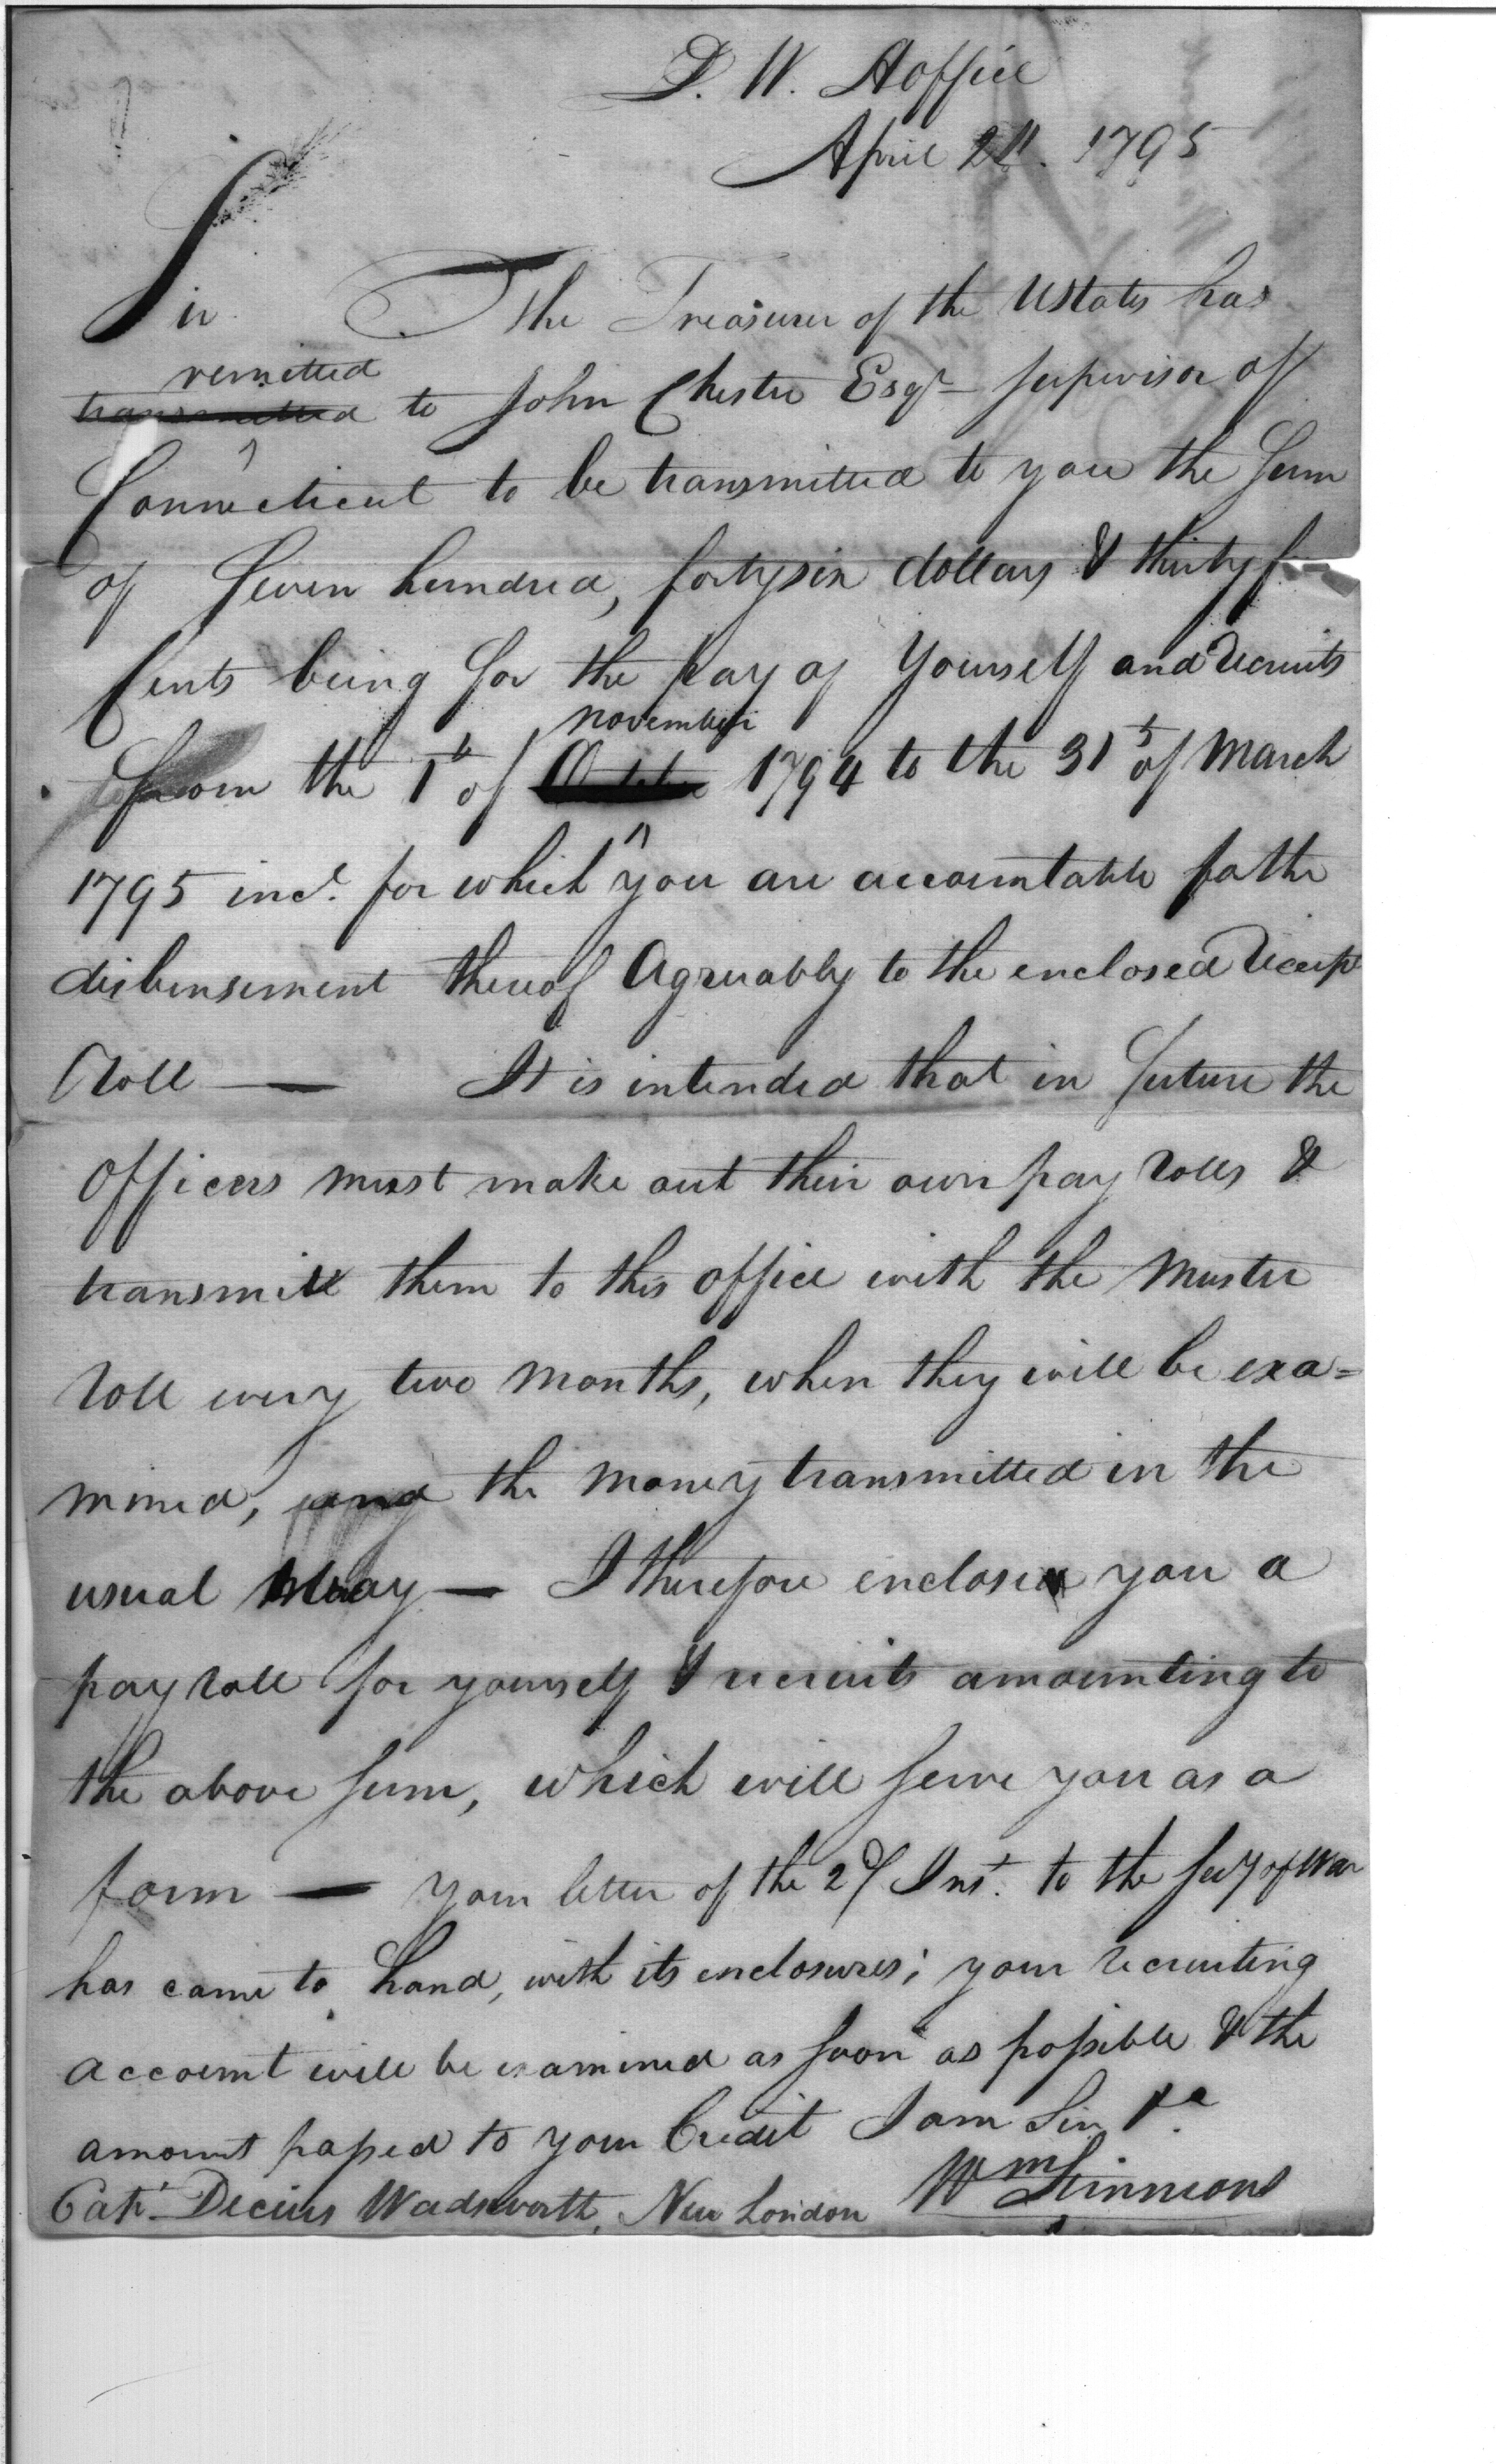 D. W. A office
April 1795
Sir The Treasurer of the UStates has
remitted
transmitted to John Chester Esqr supervisor of
Connecticut to be transmitted to you the sum
of Seven hundred, forty six dollars & thirty
Cents being for the pay of Yourself and recruits
november
from the 1st of October 1794 to the 31st of March
1795 incl. for which you are accountable for the
disbursement thereof Agreeably to the enclosed Receipt
Roll — It is intended that in future the
Officers must make out their own pay rolls &
transmit them to this office with the Muster
roll every two months, when they will be exa=
mined, and the money transmitted in the
usual way — I therefore enclose you a
pay roll for yourself & recruits amounting to
the above sum, which will serve you as a
form — your letter of the 2d Inst. to the Secy of War
has came to hand, with its enclosures; your recruiting
account will be examined as soon as possible & the
amount passed to your Credit I am Sir &c
Capt. Decius Wadsworth, New London Wm Simmons